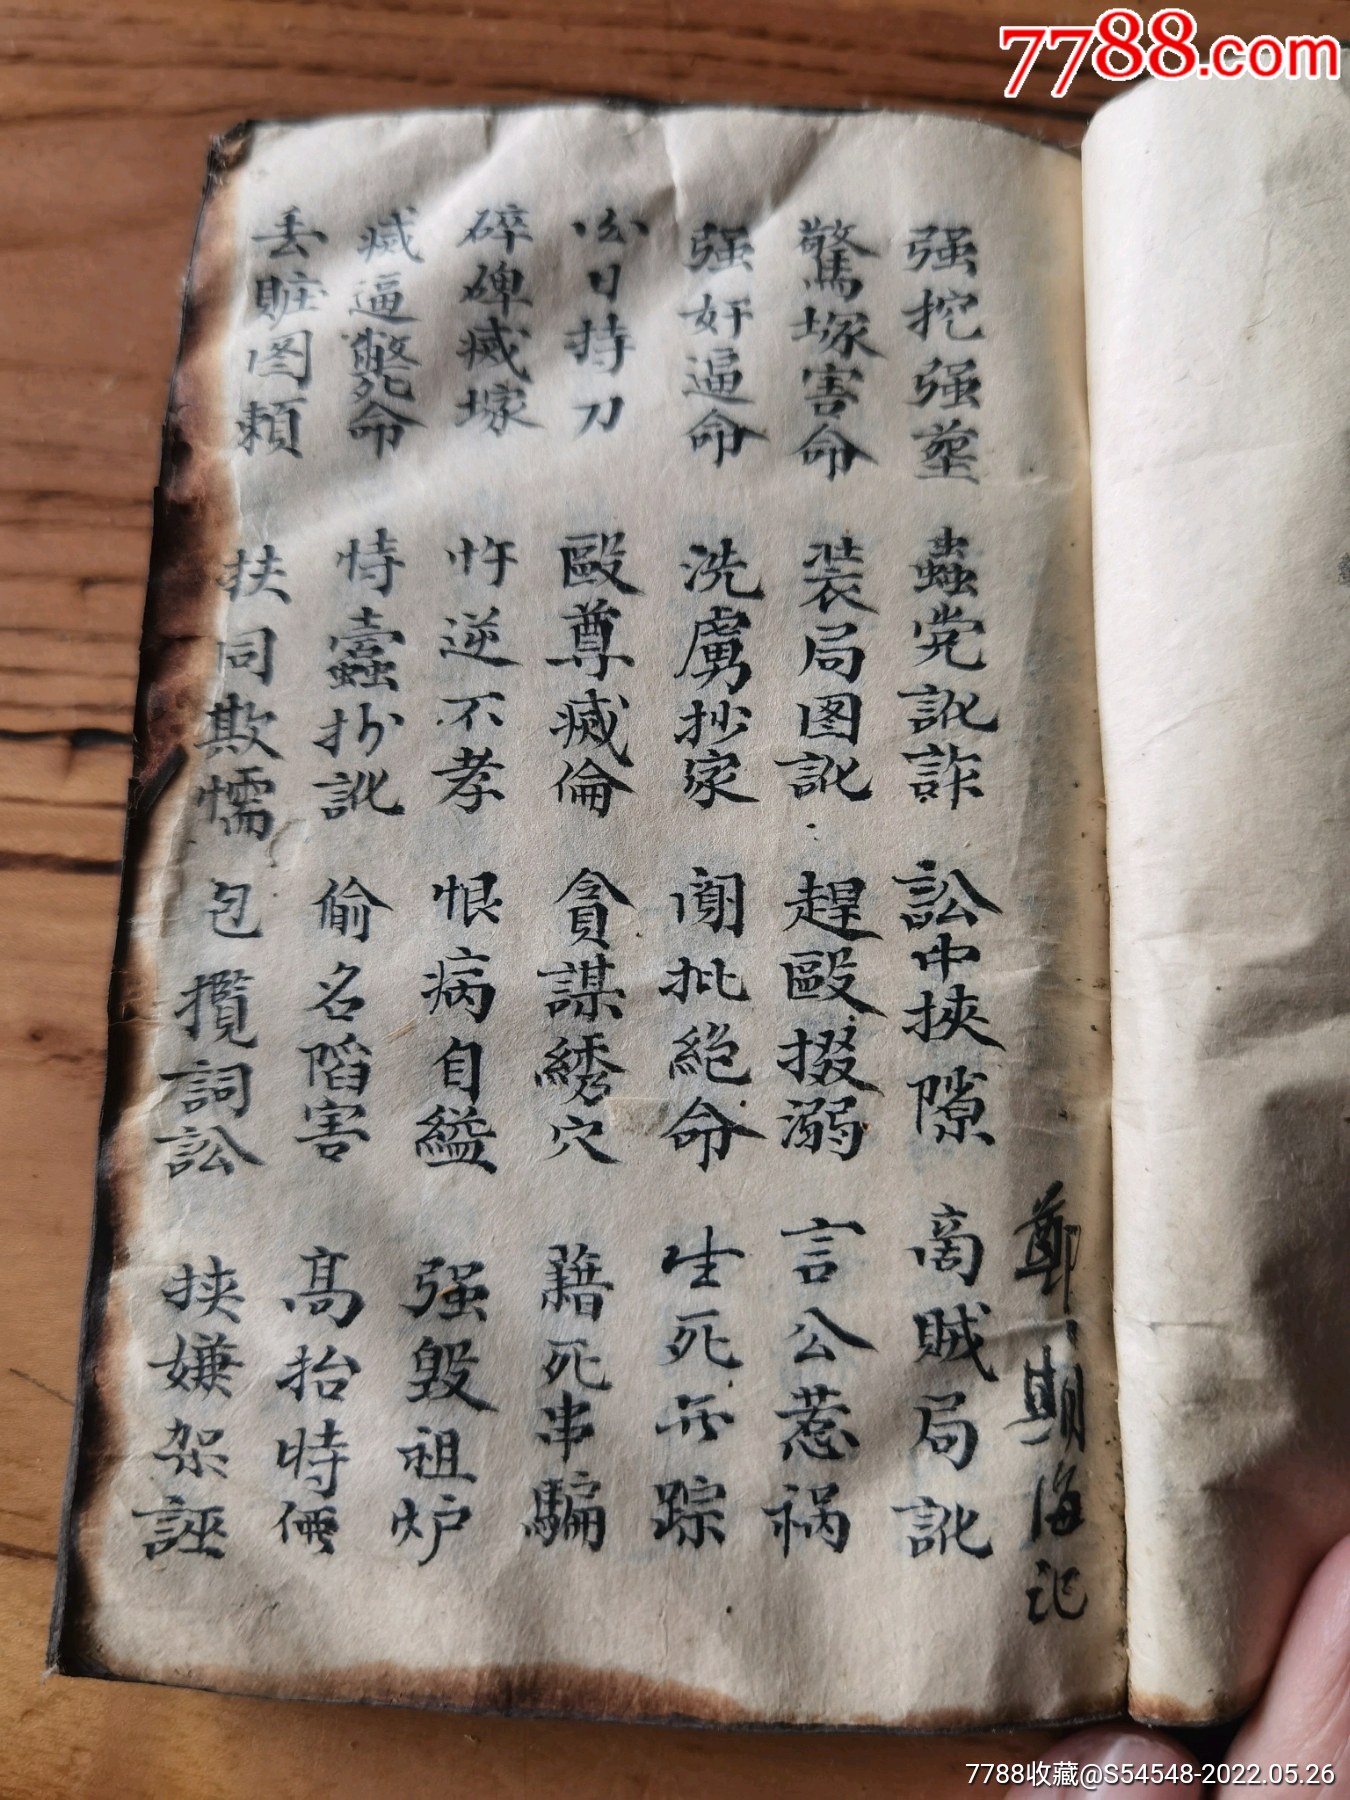 7788.com
鄭期海記
强挖强塟 蟲党訛詐 訟中挾隙 窩賊局訛
驚塚害命 装局图訛 趕毆掇溺 言公惹禍
强奸逼命 洗虜抄家 闹批絕命 生死無踪
日持刀 毆尊滅倫 貪謀綉穴 藉死串騙
碎碑滅塚 忤逆不孝 恨病自縊 强毀祖炉
滅逼斃命 恃蠹抄訛 偷名陷害 髙抬時価
丢賍图頼 扶同欺懦 包攬詞訟 挟嫌架誣
7788收藏@S54548-2022.05.26